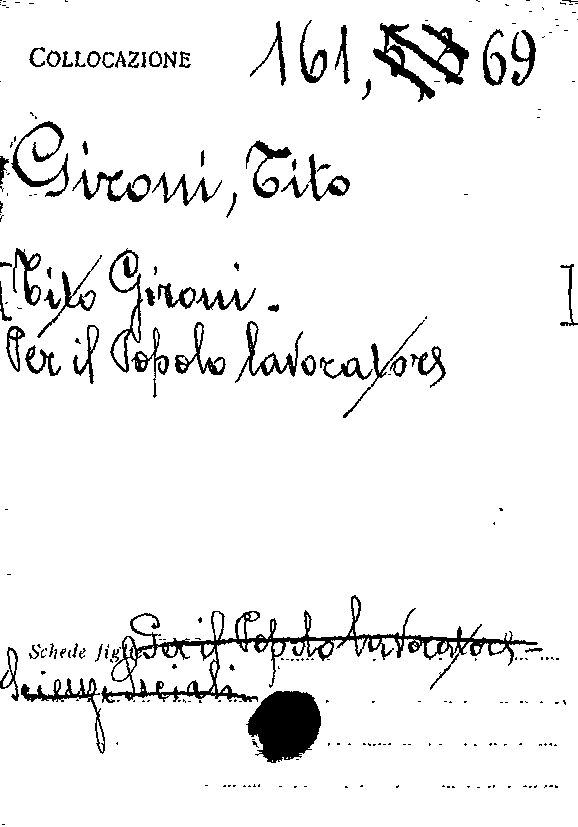 COLLOCAZIONE 161, 69
Gironi, Tito
[Tito Gironi. ]
Per il Popolo lavoratore
Schede figlie Per il Popolo lavoratore -
Scienze Sociali.